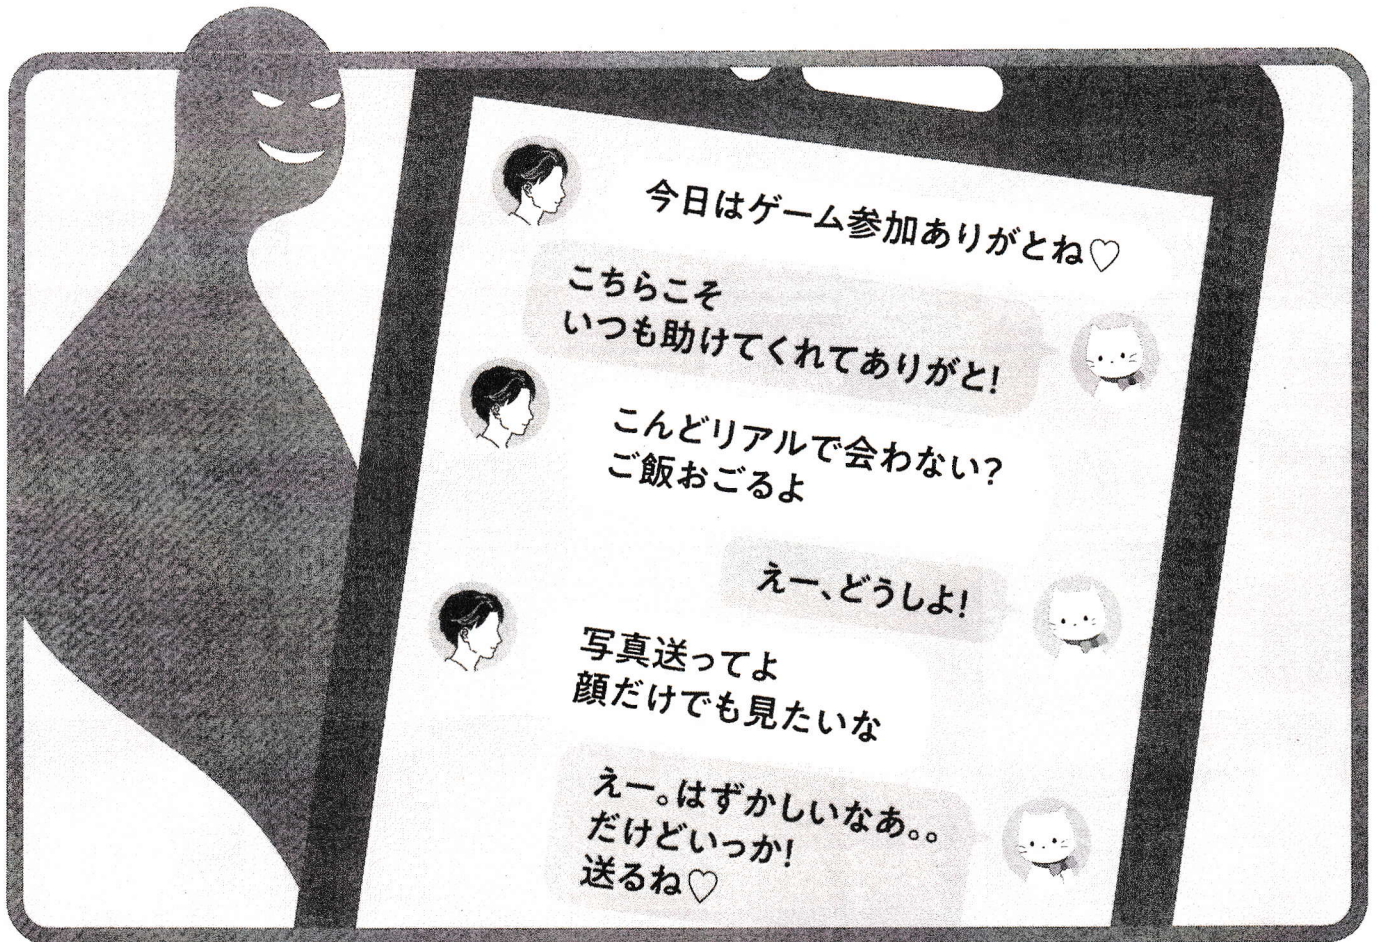 今日はゲーム参加ありがとね♡
こちらこそ
いつも助けてくれてありがと!
こんどリアルで会わない?
ご飯おごるよ
えー、どうしよ!
写真送ってよ
顔だけでも見たいな
えー。はずかしいなあ。。
だけどいっか!
送るね♡